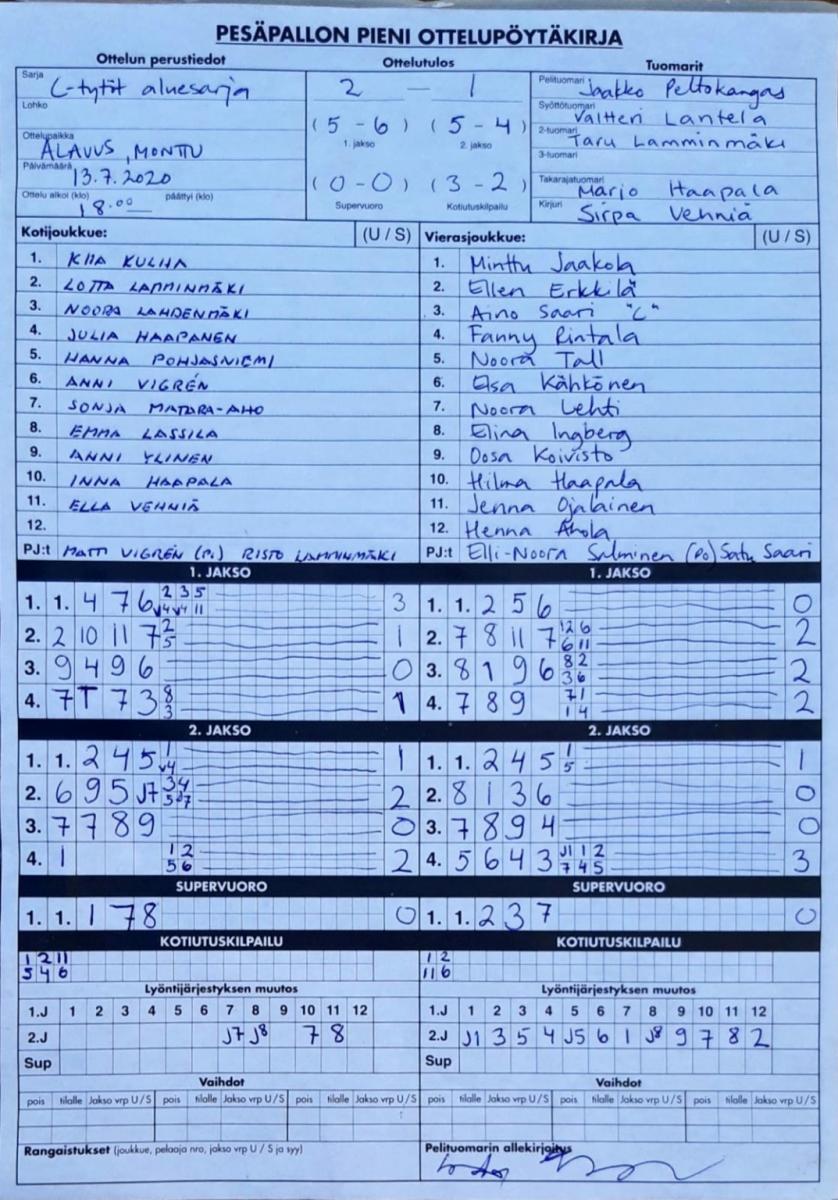 PESÄPALLON PIENI OTTELUPÖYTÄKIRJA
Ottelun perustiedot Ottelutulos Tuomarit
Sarja C-tytöt aluesarja
Lohko
Ottelupaikka ALAVUS, MONTTU
Päivämäärä 13.7.2020
Ottelu alkoi (klo) 18.00 päättyi (klo)
2 — 1
(5 - 6) (5 - 4)
1. jakso 2. jakso
(0 - 0) (3 - 2)
Supervuoro Kotiutuskilpailu
Pelituomari Jaakko Peltokangas
Syöttötuomari Valtteri Lantela
2-tuomari Taru Lamminmäki
3-tuomari
Takarajatuomari Marjo Haapala
Kirjuri Sirpa Vehniä
Kotijoukkue: (U / S)
1. KIIA KULHA
2. LOTTA LAMMINMÄKI
3. NOORA LAHDENMÄKI
4. JULIA HAAPANEN
5. HANNA POHJASNIEMI
6. ANNI VIGRÉN
7. SONJA MATARA-AHO
8. EMMA LASSILA
9. ANNI YLINEN
10. INNA HAAPALA
11. ELLA VEHNIÄ
12.
PJ:t MATTI VIGRÉN (P.) RISTO LAMMINMÄKI
Vierasjoukkue: (U / S)
1. Minttu Jaakola
2. Ellen Erkkilä
3. Aino Saari "C"
4. Fanny Rintala
5. Noora Tall
6. Elsa Kähkönen
7. Noora Lehti
8. Elina Ingberg
9. Oosa Koivisto
10. Hilma Haapala
11. Jenna Ojalainen
12. Henna Ahola
PJ:t Elli-Noora Salminen (PO) Satu Saari
1. JAKSO 1. JAKSO
1. 1. 4 7 6 2 3 5 3
J4 J4 11
2. 2 10 11 7 2 1
5
3. 9 4 9 6 0
4. 7 T 7 3 8 1
3
1. 1. 2 5 6 0
2. 7 8 11 7 12 6 2
6 11
3. 8 1 9 6 8 2 2
3 6
4. 7 8 9 7 1 2
1 4
2. JAKSO 2. JAKSO
1. 1. 2 4 5 1 1
J4
2. 6 9 5 J7 3 4 2
5 J7
3. 7 7 8 9 0
4. 1 1 2 2
5 6
1. 1. 2 4 5 1 1
5
2. 8 1 3 6 0
3. 7 8 9 4 0
4. 5 6 4 3 J1 1 2 3
7 4 5
SUPERVUORO SUPERVUORO
1. 1. 1 7 8 0 1. 1. 2 3 7 0
KOTIUTUSKILPAILU KOTIUTUSKILPAILU
1 2 11
5 4 6
1 2
11 6
Lyöntijärjestyksen muutos Lyöntijärjestyksen muutos
1.J 1 2 3 4 5 6 7 8 9 10 11 12
2.J J7 J8 7 8
Sup
1.J 1 2 3 4 5 6 7 8 9 10 11 12
2.J J1 3 5 4 J5 6 1 J8 9 7 8 2
Sup
Vaihdot Vaihdot
pois tilalle Jakso vrp U / S pois tilalle Jakso vrp U / S pois tilalle Jakso vrp U / S
pois tilalle Jakso vrp U / S pois tilalle Jakso vrp U / S pois tilalle Jakso vrp U / S
Rangaistukset (joukkue, pelaaja nro, jakso vrp U / S ja syy)
Pelituomarin allekirjoitus